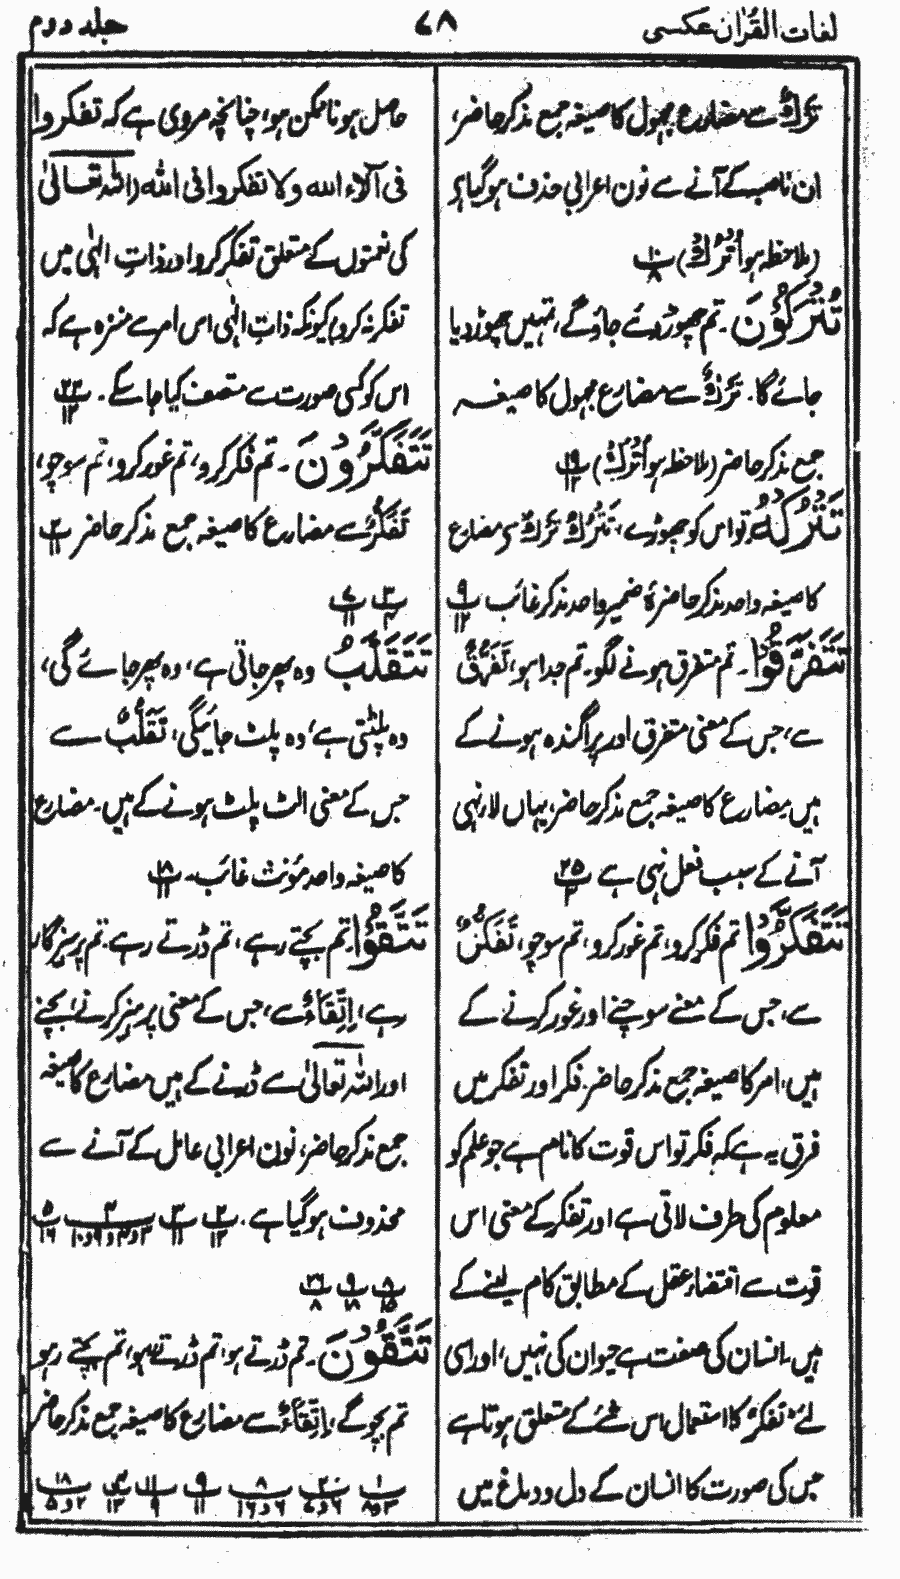 لغات القرآن عکسی
۷۸
جلد دوم
تَرْکٌ سے مضارع مجہول کا صیغہ جمع مذکر حاضر،
ان ناصب کے آنے سے نون اعرابی حذف ہوگیا ہے
(ملاحظہ ہو اُتْرُكْ) پ۱۰ ۸
تُتْرَكُوْنَ۔ تم چھوڑ دئے جاؤ گے، تمہیں چھوڑ دیا
جائے گا۔ تَرْکٌ سے مضارع مجہول کا صیغہ
جمع مذکر حاضر (ملاحظہ ہو اُتْرُكْ) پ۱۹ ۱۲
تَتْرُكْهُ۔ تو اس کو چھوڑے، تَتْرُكُ تَرْکٌ سے مضارع
کا صیغہ واحد مذکر حاضر، ہٗ ضمیر واحد مذکر غائب پ۹ ۱۲
تَتَفَرَّقُوْا۔ تم متفرق ہونے لگو۔ تم جدا ہو، تَفَرُّقٌ
سے، جس کے معنی متفرق اور پراگندہ ہونے کے
ہیں مضارع کا صیغہ جمع مذکر حاضر، یہاں لا نہی
آنے کے سبب فعل نہی ہے پ۲۵ ۳
تَتَفَكَّرُوْا تم فکر کرو، تم غور کرو، تم سوچو، تَفَکُّرٌ
سے، جس کے معنے سوچنے اور غور کرنے کے
ہیں، امر کا صیغہ جمع مذکر حاضر۔ فکر اور تفکر میں
فرق یہ ہے کہ فکر تو اس قوت کا نام ہے جو علم کو
معلوم کی طرف لاتی ہے اور تفکر کے معنی اس
قوت سے اقتضاء عقل کے مطابق کام لینے کے
ہیں۔ انسان کی صفت ہے حیوان کی نہیں، اور اسی
لئے تفکر کا استعمال اس شے کے متعلق ہوتا ہے
جس کی صورت کا انسان کے دل و دماغ میں
حاصل ہونا ممکن ہو، چنانچہ مروی ہے کہ تفکروا
فی آلاء الله ولا تفکروا فی الله (اللہ تعالیٰ
کی نعمتوں کے متعلق تفکر کرو اور ذاتِ الٰہی میں
تفکر نہ کرو) کیونکہ ذاتِ الٰہی اس امر سے منزہ ہے کہ
اس کو کسی صورت سے متصف کیا جا سکے۔ پ۲۳ ۱۲
تَتَفَكَّرُوْنَ۔ تم فکر کرو، تم غور کرو، تم سوچو،
تَفَکُّرٌ سے مضارع کا صیغہ جمع مذکر حاضر پ۲ ۱۱
پ۳ ۴ پ۷ ۱۱
تَتَقَلَّبُ وہ پھر جاتی ہے، وہ پھر جائے گی،
وہ پلٹتی ہے، وہ پلٹ جائیگی، تَقَلُّبٌ سے
جس کے معنی الٹ پلٹ ہونے کے ہیں۔ مضارع
کا صیغہ واحد مؤنث غائب۔ پ۱۸ ۱۱
تَتَّقُوْا تم بچتے رہے، تم ڈرتے رہے۔ تم پرہیزگار
رہے، اِتِّقَاءٌ سے، جس کے معنی پرہیز کرنے، بچنے
اور اللہ تعالیٰ سے ڈرنے کے ہیں مضارع کا صیغہ
جمع مذکر حاضر، نون اعرابی عامل کے آنے سے
محذوف ہوگیا ہے۔ پ۲ ۱۲ پ۳ ۱۱ پ۴ ۳و۴و۹و۱۰ پ۵ ۱۶
پ۸ ۱۵ پ۹ ۱۸ پ۲۶ ۸
تَتَّقُوْنَ۔ تم ڈرتے ہو، تم ڈرتے رہو، تم بچتے رہو
تم بچو گے، اِتِّقَاءٌ سے مضارع کا صیغہ جمع مذکر حاضر
پ۱ ۳و۸ پ۲ ۶و۷ پ۸ ۶و۱۶ پ۹ ۱۱ پ۱۱ ۹ ۱۳ پ۱۸ ۲و۵